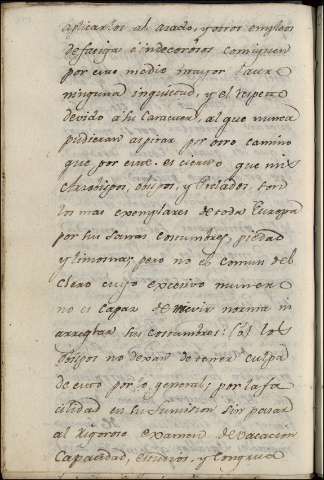 aplicarlos al arado, y otros empleos
de fatiga, e indecorosos consiguen
por este medio mayor
ninguna inquietud, y el respeto
devido a su Caracter, al que nunca
pudieran aspirar por otro camino
que por este. es cierto que mis
Arzobispos, obispos, y Prelados, son
los mas exemplares de toda Europa
por sus santas costumbres, piedad
y limosnas, pero no el comun del
Clero cuyo excesivo numero
no es capaz de norma ni
arreglar sus costumbres:
obispos no dexan de tener culpa
de esto por lo general; por la fa
cilidad en su sumision sin pasar
al rigoroso examen de vocacion
Capacidad, estudios, y congrua